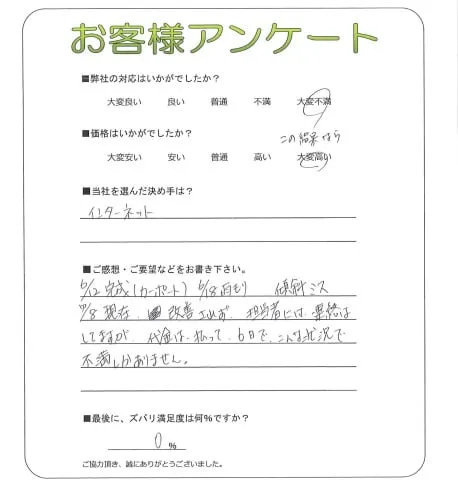 お客様アンケート
■弊社の対応はいかがでしたか？
大変良い 良い 普通 不満 大変不満
■価格はいかがでしたか？
この結果なら
大変安い 安い 普通 高い 大変高い
■当社を選んだ決め手は？
インターネット
■ご感想・ご要望などをお書き下さい。
6/12 完成(カーポート) 6/18 雨もり 傾斜ミス
8現在、改善されず、担当者には、連絡は
してますが、代金は、払って、こんな状況で
不満しかありません。
■最後に、ズバリ満足度は何%ですか？
0 %
ご協力頂き、誠にありがとうございました。